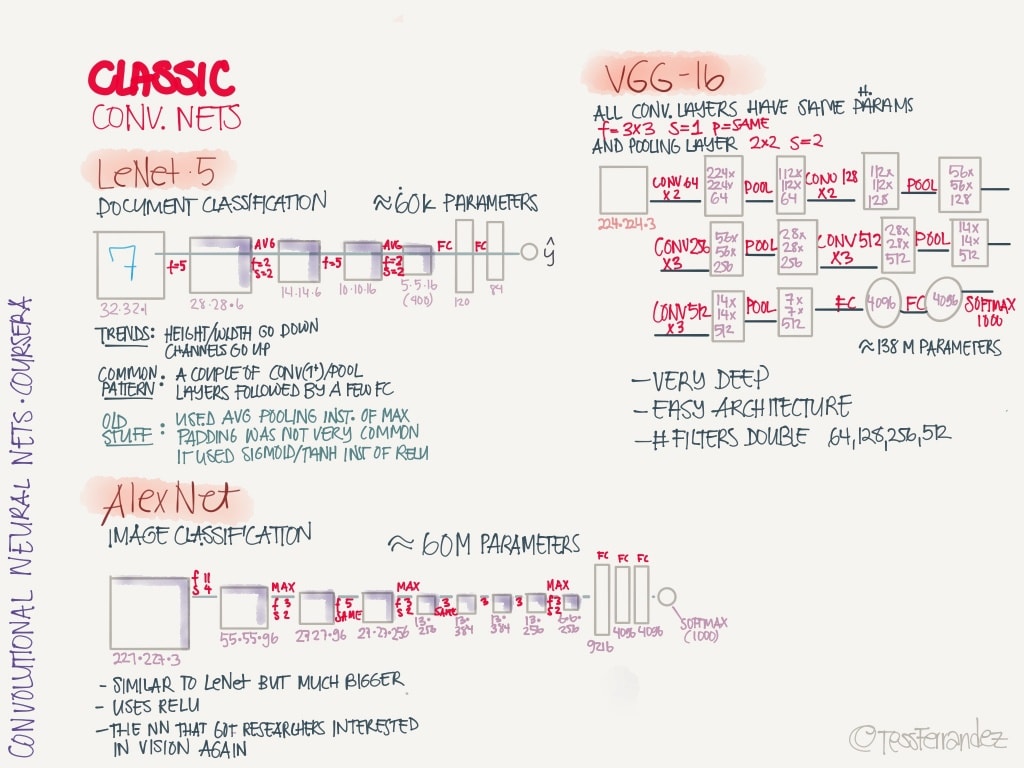 CLASSIC
CONV. NETS
LeNet·5
DOCUMENT CLASSIFICATION ≈60K PARAMETERS
7
f=5
AVG
f=2
S=2
f=5
AVG
f=2
S=2
FC
FC
ŷ
32·32·1
28·28·6
14·14·6
10·10·16
5·5·16
(400)
120
84
TRENDS: HEIGHT/WIDTH GO DOWN
CHANNELS GO UP
COMMON PATTERN: A COUPLE OF CONV(1+)/POOL
LAYERS FOLLOWED BY A FEW FC
OLD STUFF: USED AVG POOLING INST. OF MAX
PADDING WAS NOT VERY COMMON
IT USED SIGMOID/TANH INST OF RELU
AlexNet
IMAGE CLASSIFICATION ≈ 60M PARAMETERS
f 11
S 4
MAX
f 3
S 2
f 5
SAME
MAX
f 3
S 2
3
SAME
3
3
MAX
f 3
S 2
FC
FC
FC
227·227·3
55·55·96
27·27·96
27·27·256
13·
256
13·
384
13·
384
13·
256
6·6·
256
9216
4096
4096
SOFTMAX
(1000)
- SIMILAR TO LeNet BUT MUCH BIGGER
- USES RELU
- THE NN THAT GOT RESEARCHERS INTERESTED
IN VISION AGAIN
VGG-16
ALL CONV. LAYERS HAVE SAME H. PARAMS
f=3×3 S=1 P=SAME
AND POOLING LAYER 2×2 S=2
224·224·3
CONV 64
×2
224×
224×
64
POOL
112×
112×
64
CONV 128
×2
112×
112×
128
POOL
56×
56×
128
CONV 256
×3
56×
56×
256
POOL
28×
28×
256
CONV 512
×3
28×
28×
512
POOL
14×
14×
512
CONV 512
×3
14×
14×
512
POOL
7×
7×
512
FC
4096
FC
4096
SOFTMAX
1000
≈138 M PARAMETERS
- VERY DEEP
- EASY ARCHITECTURE
- # FILTERS DOUBLE 64,128,256,512
CONVOLUTIONAL NEURAL NETS · COURSERA
©TessFerrandez